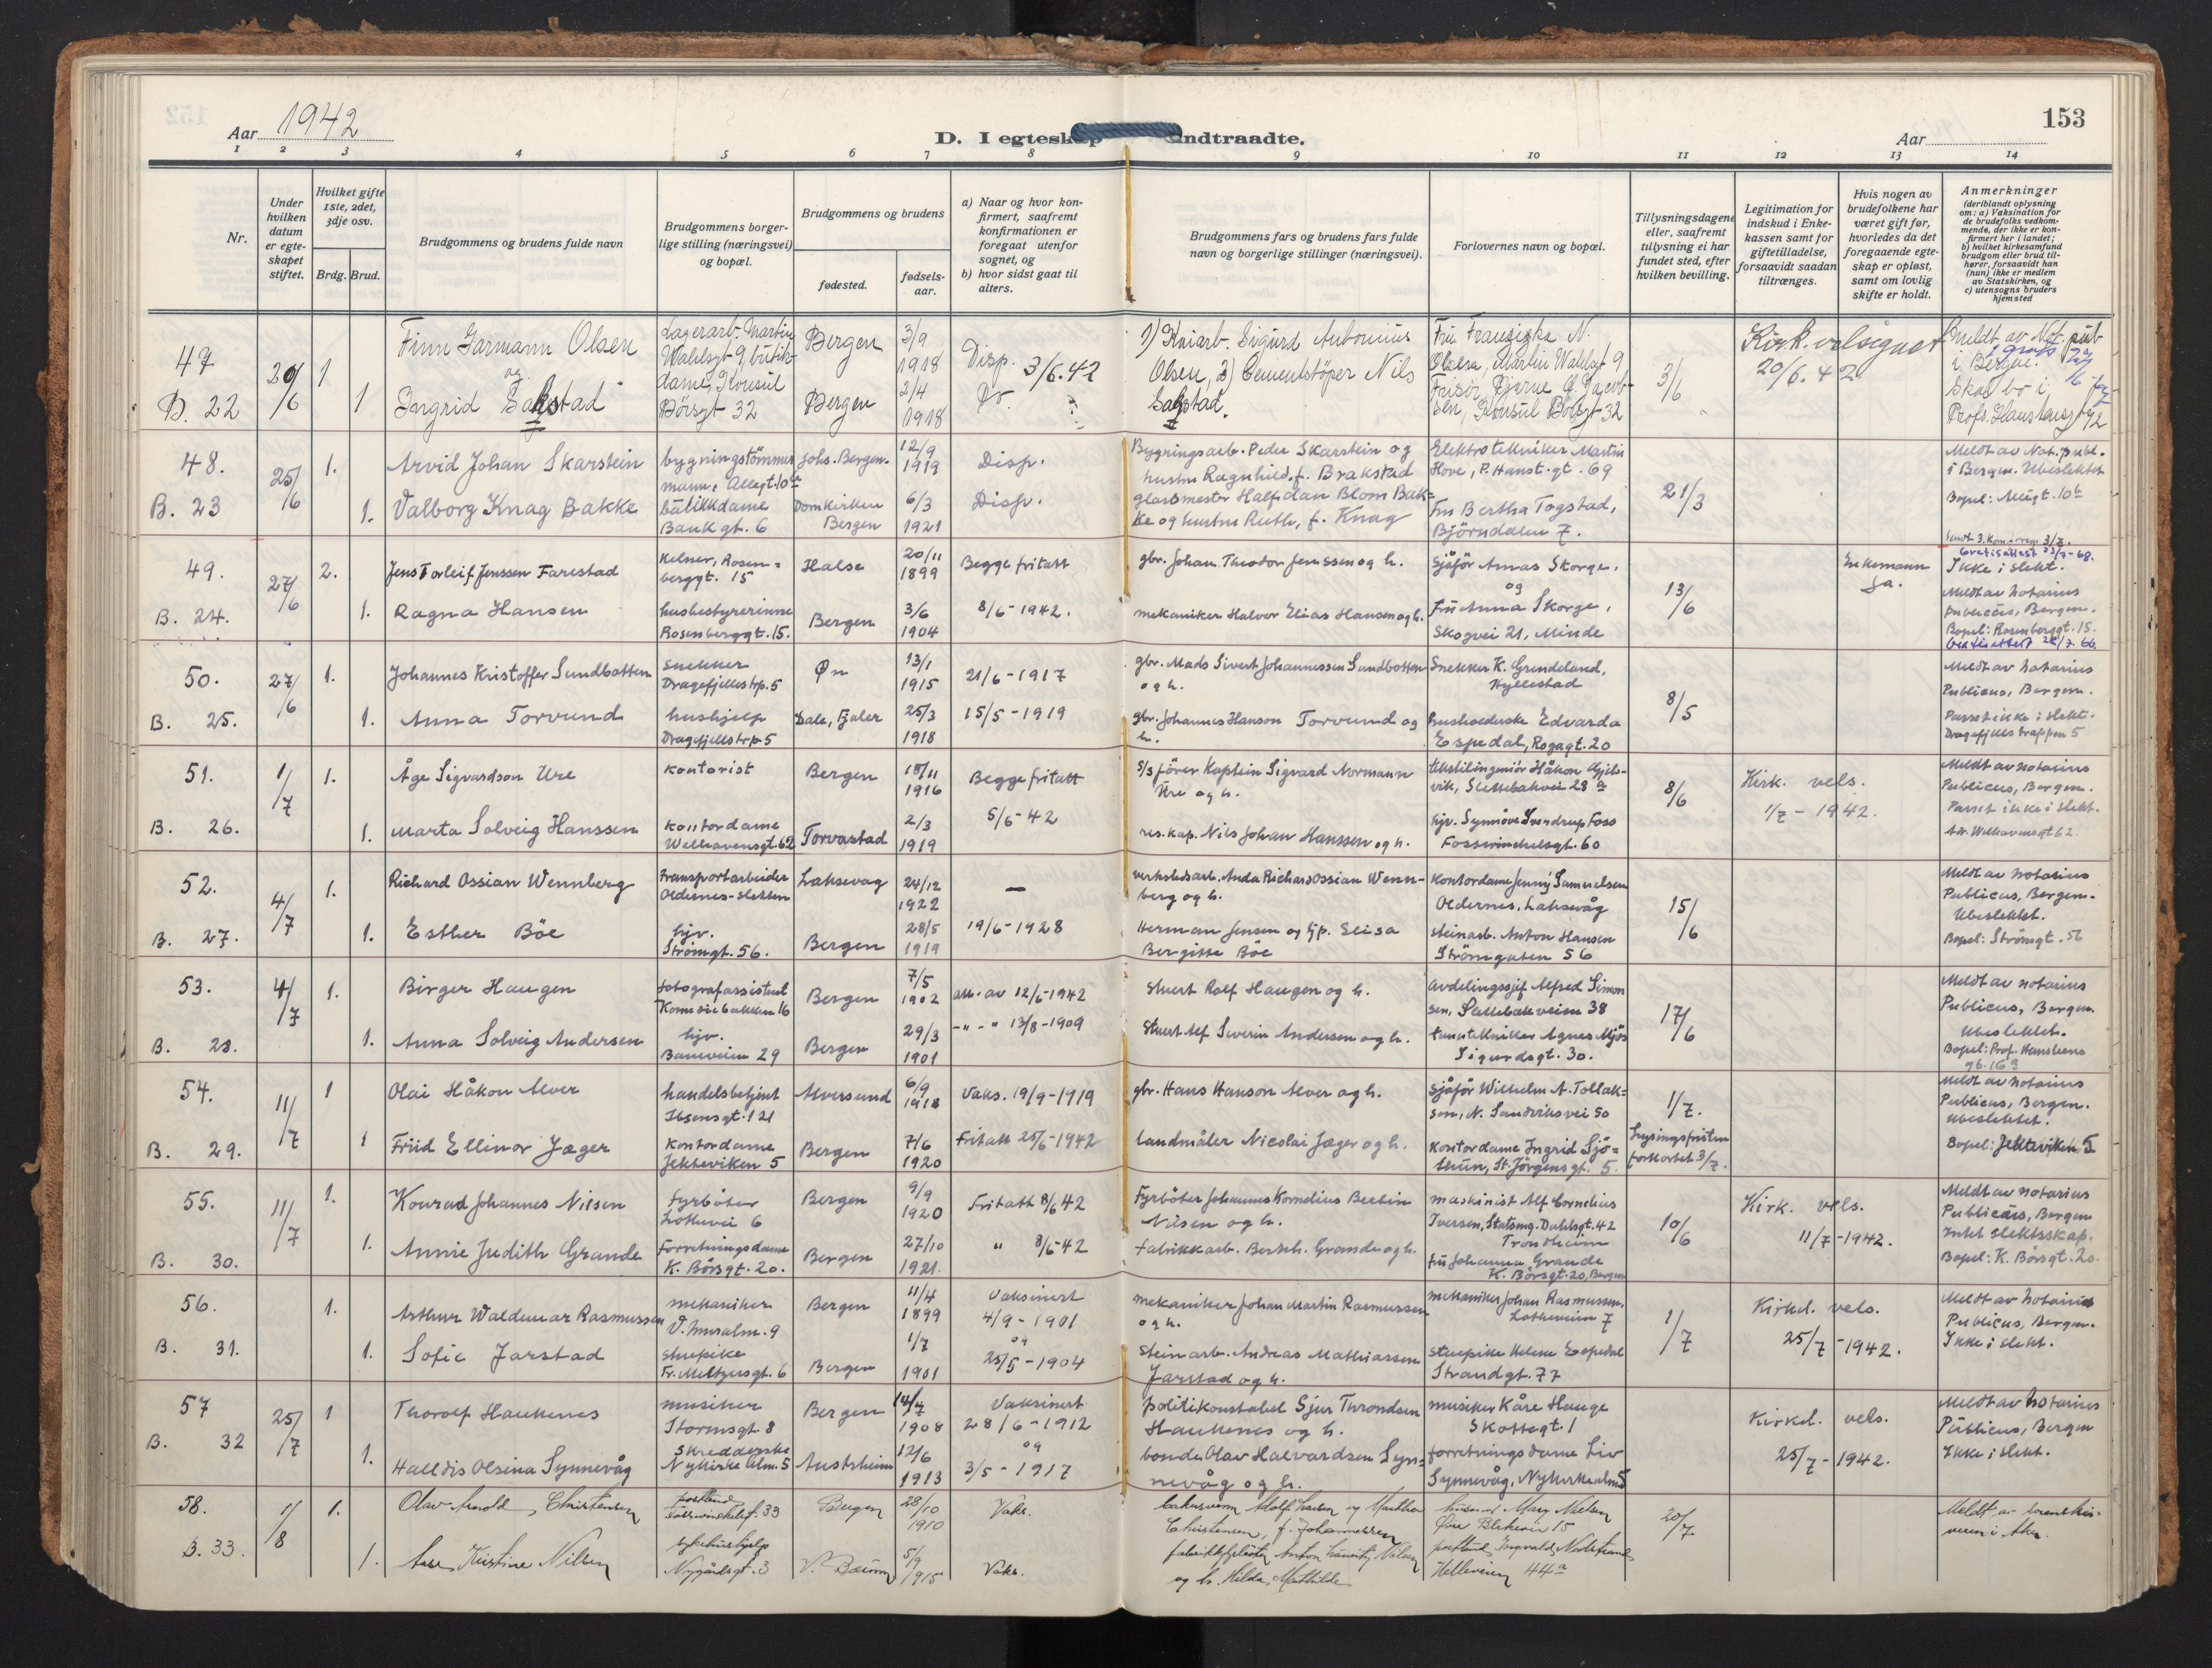 Aar 1942
D. I egteskap indtraadte.
153
Aar
1 2 3 4 5 6 7 8 9 10 11 12 13 14
Nr.
Under hvilken datum er egte-skapet stiftet.
Hvilket gifte 1ste, 2det, 3dje osv.
Brdg. Brud.
Brudgommens og brudens fulde navn
Brudgommens borger-lige stilling (næringsvei) og bopæl.
Brudgommens og brudens
fødested.
fødsels-aar.
a) Naar og hvor kon-firmert, saafremt konfirmationen er foregaat utenfor sognet, og
b) hvor sidst gaat til alters.
Brudgommens fars og brudens fars fulde navn og borgerlige stillinger (næringsvei).
Forlovernes navn og bopæl.
Tillysningsdagene eller, saafremt tillysning ei har fundet sted, efter hvilken bevilling.
Legitimation for indskud i Enke-kassen samt for giftetilladelse, forsaavidt saadan tiltrænges.
Hvis nogen av brudefolkene har været gift før, hvorledes da det foregaaende egte-skap er opløst, samt om lovlig skifte er holdt.
Anmerkninger (deriblandt oplysning om: a) Vaksination for de brudefolks vedkom-mende, der ikke er kon-firmert her i landet; b) hvilket kirkesamfund brudgom eller brud til-hører, forsaavidt han (hun) ikke er medlem av Statskirken, og c) utensogns bruders hjemsted
47 20/6 1 Finn Garmann Olsen Lagerarb. Martin Wahlsgt 9, butik- Bergen 3/9 1918 Disp. 3/6.42
og
B. 22 1 Ingrid Sakstad dame, Konsul Börsgt 32 Bergen 2/4 1918 Do.
1) Kaiarb. Sigurd Antonius Olsen, 2) Cementstöper Nils Sakstad.
Fru Franziska N. Olsen, Martin Wahlsgt 9
Frisör Bjarne G. Jacob-sen, Konsul Börsgt 32
3/6
Kirk. velsignet 20/6.42
Anmeldt av Not. pub. i Bergen. Skal bo i Profs. Hansteensgt 42
48. 25/6 1. Arvid Johan Skarstein bygningstömmer mann, Allegt. 10 a Johs. Bergen. 12/9 1919 Disp.
B. 23 1. Valborg Knag Bakke butikkdame Bankgt. 6 Domkirken Bergen 6/3 1921 Disp.
Bygningsarb. Peder Skarstein og hustru Ragnhild, f. Brakstad
glassmester Halfdan Blom Bak-ke og hustru Ruth, f. Knag
Elektrotekniker Martin Hove, P. Hanst. gt. 69
Fru Bertha Togstad, Björndalen 7.
21/3
Meldt av Not. publ. i Bergen. Ubeslektet
Bopel: Allegt. 10 b
49. 27/6 2. Jens Torleif Jenssen Farestad Kelner, Rosen-berggt. 15 Halse 20/11 1899 Begge fritatt
B. 24. 1. Ragna Hansen husbestyrerinne Rosenberggt. 15. Bergen 3/6 1904 8/6-1942.
gbr. Johan Theodor Jenssen og h.
mekaniker Halvor Elias Hansen og h.
Sjåför Annas Skorge, og
Fru Anna Skorge, Skogvei 21, Minde
13/6
Enkemann Ja.
Sendt 3. Kom. regr. 3/7.
Gratisattest 23/7-68.
Ikke i slekt.
Meldt av notarius publicus, Bergen.
Bopel: Rosenberggt. 15.
50. 27/6 1. Johannes Kristoffer Sundbotten Snekker Dragefjellstrp. 5 Øn 13/1 1915 21/6-1917
B. 25. 1. Anna Torvund hushjelp Dragefjellstrp 5 Dale, Fjaler 25/3 1918 15/5-1919
gbr. Mads Sivert Johannessen Sundbotten og h.
gbr. Johannes Hanson Torvund og h.
Snekker K. Grindeland, Hyllestad
husholderske Edvarda Espedal, Rogagt. 20
8/5
Meldt av notarius Publicus, Bergen.
Parret ikke i slekt.
Dragefjells trappen 5
51. 1/7 1. Åge Sigvardson Ure Kontorist Bergen 15/11 1916 Begge fritatt
B. 26. 1. Marta Solveig Hanssen Kontordame Welhavensgt. 62 Torvastad 2/3 1919 5/6-42
S/s förer Kaptein Sigvard Normann Ure og h.
res. kap. Nils Johan Hanssen og h.
tekstilingeniör Håkon Gjels-vik, Slettebakvei 28 a
hjv. Synnöve Svendrup Foss Fosswinckelsgt. 60
8/6
Kirk. vels. 1/7-1942.
Meldt av notarius Publicus, Bergen.
Parret ikke i slekt.
Adr. Welhavensgt 62.
52. 4/7 1. Richard Ossian Wennberg transportarbeider Oldernes-sletten Laksevag 24/12 1922 —
B. 27. 1. Esther Böe hjv. Strömgt. 56. Bergen 28/5 1919 19/6-1928
verkstedsarb. Anda Richard Ossian Wenn-berg og h.
Herman Jensen og hjp. Elisa Bergitte Böe
Kontordame Jenny Samuelsen Oldernes, Laksevåg
steinarb. Anton Hansen Strömgaten 56
15/6
Meldt av notarius Publicus, Bergen.
Ubeslektet.
Bopel: Strömgt. 56
53. 4/7 1. Birger Haugen fotografassistent Komediebakken 16 Bergen 7/5 1902 att. av 12/6-1942
B. 28. 1. Anna Solveig Andersen hjv. Baneveien 29 Bergen 29/3 1901 -"-" 13/8-1909
Stuert Rolf Haugen og h.
Stuert Alf Severin Andersen og h.
avdelingssjef Alfred Simon sen, Slettebakveien 38
tanntekniker Agnes Mjös Sigurdsgt. 30.
17/6
Meldt av notarius Publicus, Bergen.
Ubeslektet.
Bopel: Prof. Hansteens gt. 16 a
54. 11/7 1 Olai Håkon Alver handelsbetjent Ibsensgt. 121 Alversund 6/9 1918 Vaks. 19/9-1919
B. 29. 1 Friid Ellinor Jæger Kontordame Jekteviken 5 Bergen 7/6 1920 Fritatt 25/6-1942
gbr. Hans Hanson Alver og h.
landmåler Nicolai Jæger og h.
Sjåför Wilhelm A. Tollak-sen, N. Sandviksvei 50
Kontordame Ingrid Sjö-thun, St. Jörgensgt. 5.
1/7. Lysingsfristen forkortet 3/7.
Meldt av notarius Publicus, Bergen.
Ubeslektet.
Bopel: Jekteviken 5
55. 11/7 1. Konrad Johannes Nilsen Fyrböter Lotkevei 6 Bergen 9/9 1920 Fritatt 8/6 42
B. 30. 1. Annie Judith Grande Forretningsdame K. Börsgt. 20. Bergen 27/10 1921. " 8/6-42
Fyrböter Johannes Kornelius Bertin Nilsen og h.
fabrikkarb. Bersh. Grande og h.
maskinist Alf Cornelius Iversen, Statsing. Dahlsgt. 42 Trondheim
fru Johanna Grande K. Börsgt. 20, Bergen
10/6
Kirk. vels. 11/7-1942.
Meldt av notarius Publicus, Bergen
Intet slektsskap.
Bopel: K. Börsgt. 20.
56. 1. Arthur Waldemar Rasmussen mekaniker V. Muralm. 9 Bergen 11/4 1899 Vaksinert 4/9-1901
og
B. 31. 1. Sofie Jarstad stuepike Fr. Meltzersgt. 6 Bergen 1/7 1901 25/5-1904
mekaniker Johan Martin Rasmussen og h.
Steinarb. Andreas Mathiassen Jarstad og h.
mekaniker Johan Rasmussen, Lotheveien 7
stuepike Helene Espedal Strandgt. 77
1/7
Kirkel. vels. 25/7-1942.
Meldt av notarius Publicus, Bergen.
Ikke i slekt.
57 25/7 1 Thorolf Haukenes musiker Stormsgt. 8 Bergen 14/7 1908 Vaksinert 28/6-1912
og
B. 32 1. Halldis Olsina Synnevåg Skredderske Nykirke alm. 5 Austrheim 12/6 1913 3/5-1917
politikonstabel Sjur Throndsen Haukenes og h.
bonde Olav Halvardsen Syn-nevåg og h.
musiker Kåre Hauge Skottegt. 1
forretningsdame Liv Synnevåg, Nykirkealm 5
Kirkel. vels. 25/7-1942.
Meldt av notarius Publicus, Bergen
Ikke i slekt.
58. 1/8 1. Olav Arnold Christensen postbud Fosswinckelsgt. 33 Bergen 28/10 1910 Vaks.
B. 33. 1. Kristine Nilsen sykehushjelp Nygårdsgt. 3 V. Bærum 5/9 1915 Vaks.
Adolf og Martha Christensen, f. Johannessen
Anton Nilsen og h. Hilda Mathilde
Mary Nielsen Øvre Blekevei 15
postbud Ingvald Helleveien 44 a
20/7
Meldt av